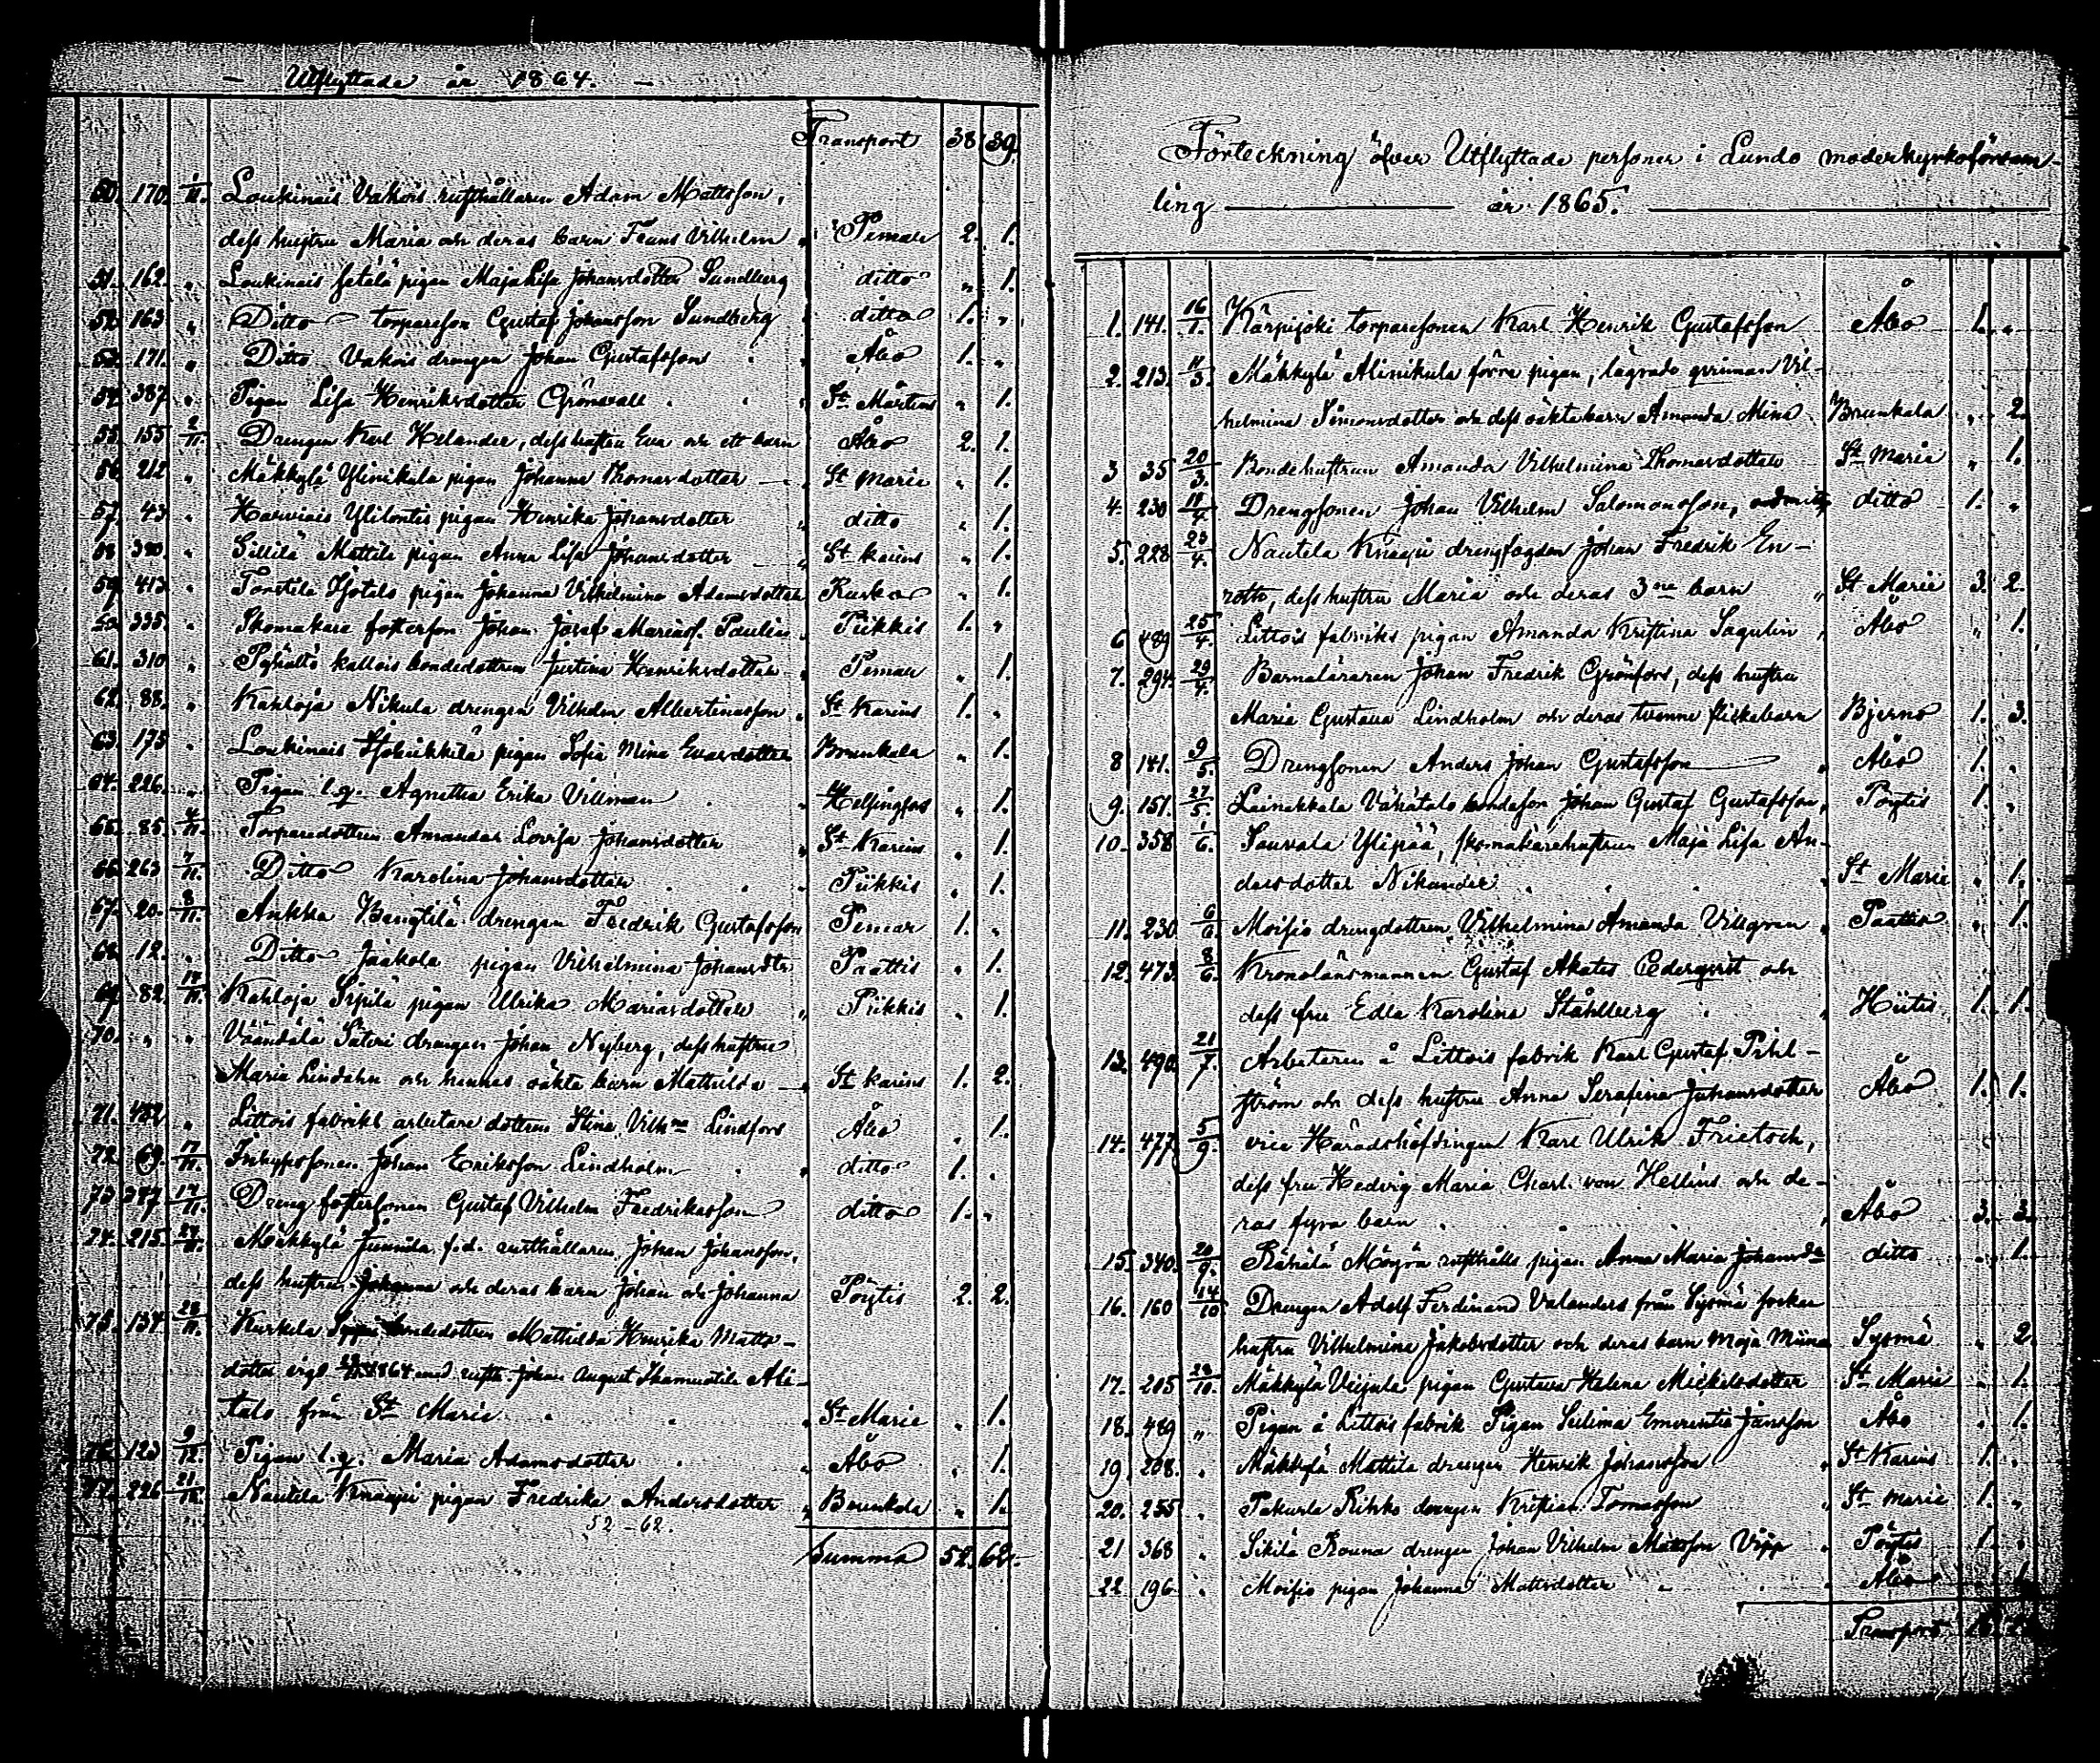 – Utflyttade år 1864. –
Transport 38 39
50. 170. 1/11. Loukinais Vakois rusthållaren Adam Mattsson,
dess hustru Maria och deras barn Frans Vilhelm „ Pemar 2. 1.
51. 162. „ Loukinais pigan Maja Lisa Johansdotter Sundberg ditto „ 1.
52. 163 „ Ditto torpareson Gustaf Johansson Sundberg ditto 1. „
53. 171. „ Ditto Vakois drengen Johan Gustafsson „ Åbo 1. „
54. 387 „ Pigan Lisa Henriksdotter Grönvall „ St. Mårtens „ 1.
55. 155 2/11. Drengen Karl Helander, dess hustru Eva och ett barn Åbo 2. 1.
56. 212 „ Mäkkylä Ylinikula pigan Johanna Thomasdotter — St Marie „ 1.
57. 43 „ Harviais Ylilontis pigan Henrika Johansdotter „ ditto „ 1.
58 380. „ Sillilä Mattila pigan Anna Lisa Johansdotter „ St Karins „ 1.
59. 413. „ Tortila Isotalo pigan Johanna Vilhelmina Adamsdotter Rusko „ 1.
60. 335. „ Skomakare fosterson Johan Josef Mariæs. Paulin „ Piikkis 1. „
61. 310 „ Pyhältö Kallois bondedottren Justina Henriksdotter „ Pemar „ 1.
62. 88. „ Kahloja Nikula drengen Vilhelm Albertinasson „ St Karins 1. „
63. 175 „ Loukinais pigan Sofia Mina Evasdotter Brunkala „ 1.
64. 226. „ Pigan l.q. Agnetha Erika Villman „ Helsingfors „ 1.
65. 85 4/11. Torparedottren Amanda Lovisa Johansdotter „ St Karins „ 1.
66. 263 7/11. Ditto Karolina Johansdotter „ Piikkis „ 1.
67. 20. 8/11. Ankka Bengtilä drengen Fredrik Gustafsson Pemar 1. „
68. 12. „ Ditto Jaakola pigan Vilhelmina Johansdtr Paattis „ 1.
69. 82. 14/11. Kahloja Sipilä pigan Ulrika Mariasdotter „ Piikkis „ 1.
70. „ „ Väändälä Säteri drengen Johan Nyberg, dess hustru
Maria Lindahn och hennes oäkta barn Mathilda — „ St Karins 1. 2.
71. 482. „ Littois fabriks arbetare dottren Stina Vilhna Lindfors Åbo „ 1.
72. 69. 17/11. Inhysessonen Johan Eriksson Lindholm „ ditto 1. „
73. 377 19/11. Dreng fostersonen Gustaf Vilhelm Fredriksson ditto 1. „
74. 215. 27/11. Mäkkylä Junnila f.d. rusthållaren Johan Johansson,
dess hustru Johanna och deras barn Johan och Johanna Pöytis 2. 2.
75. 137 28/11. Kurkela bondedottren Mathilda Henrika Matts-
dotter vigd 1864 med rusth. Johan August Ali-
talo från St Marie „ St Marie „ 1.
76. 123 9/12. Pigan l.q. Maria Adamsdotter „ Åbo „ 1.
77. 226 21/12. Nautela Knaapi pigan Fredrika Andersdotter „ Brunkala „ 1.
52 – 62.
Summa 52. 62.
Förteckning öfver Utflyttade personer i Lundo moderkyrkoförsam-
ling — år 1865. —
1. 141. 16/1. Kärpijoki torparesonen Karl Henrik Gustafsson Åbo 1. „
2. 213. 11/3. Mäkkylä Alinikula förra pigan, lägrade qvinnan Vil-
helmina Simonsdotter och dess oäkta barn Amanda Mina Brunkala „ 2.
3 35 20/3. Bondehustrun Amanda Vilhelmina Thomasdotter St Marie „ 1.
4. 230 18/4. Drengsonen Johan Vilhelm Salomonsson, ditto 1. „
5. 228. 23/4. Nautela Knaapi drengfogden Johan Fredrik En-
rotto, dess hustru Maria och deras 3ne barn „ St Marie 3. 2.
6 489 25/4. Littois fabriks pigan Amanda Kristina Sagulin „ Åbo „ 1.
7. 294. 29/4. Barnaläraren Johan Fredrik Grönfors, dess hustru
Maria Gustava Lindholm och deras tvenne flickebarn Bjerno 1. 3.
8 141. 9/5. Drengsonen Anders Johan Gustafsson „ Åbo 1. „
9. 151. 27/5. Lainakkala Vähätalo bondeson Johan Gustaf Gustafsson, Pöytis 1. „
10. 358 1/6. Sauvala Ylipää, skomakarehustrun Maja Lisa An-
dersdotter Nikander „ St Marie „ 1.
11. 230 6/6 Moisio drengdottren Vilhelmina Amanda Villgren „ Paattis „ 1.
12. 473. 8/6. Kronolänsmannen Gustaf Akates Cederqvist och
dess fru Edla Karolina Ståhlberg „ Hiitis 1. 1.
13. 490. 21/7. Arbetaren å Littois fabrik Karl Gustaf Pihl-
ström och dess hustru Anna Serafina Johansdotter Åbo 1. 1.
14. 477. 5/9. vice Häradshöfdingen Karl Ulrik Frietsch,
dess fru Hedvig Maria Charl. von Hellens och de-
ras fyra barn „ Åbo 3. 3.
15. 340. 20/9. Rähälä Möyrö rusthålls pigan Anna Maria Johansdr ditto „ 1.
16. 160 14/10 Drengen Adolf Ferdinand Valanders från Sysmä socken
hustru Vilhelmina Jakobsdotter och deras barn Maja Miina Sysmä „ 2.
17. 205 28/10. Mäkkylä Veijula pigan Gustava Helena Mickelsdotter St Marie „ 1.
18. 489 „ Pigan å Littois fabrik Pigan Selima Emerentia Jansson Åbo „ 1.
19. 208. „ Mäkkylä Mattila drengen Henrik Johansson „ St Karins 1. „
20. 255 „ Pakurla Rihko drengen Kristian Tomasson „ St Marie 1. „
21 368 „ Sikilä Rouna drengen Johan Vilhelm Mattsson Vipp „ Pöytis 1. „
22. 196 „ Moisio pigan Johanna Mattsdotter „ Åbo „ 1.
Transport